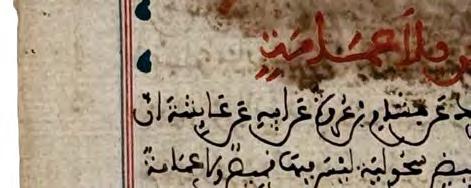 ولا عمامة
عن هشام بن عروة عن ابيه عن عايشة ان
بيض سحولية ليس فيها قميص ولا عمامة